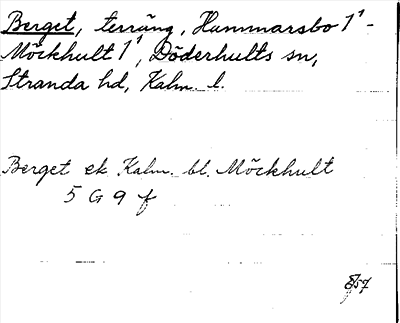 Berget, terräng, Hammarsbo 1¹-
Möckhult 1¹, Döderhults sn,
Stranda hd, Kalm. l.
Berget ek Kalm. bl. Möckhult
5 G 9 f
57